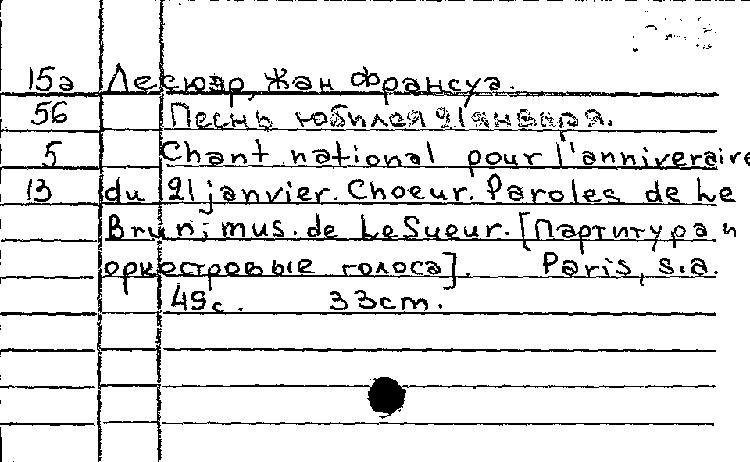 15а Лесюэр, Жан Франсуа.
56 Песнь юбилея 21 января.
5 Chant national pour l'anniveraire
13 du 21 janvier. Choeur. Paroles de Le
Brun; mus. de Le Sueur. [Партитура и
оркестровые голоса]. Paris, s.a.
49с. 33cm.